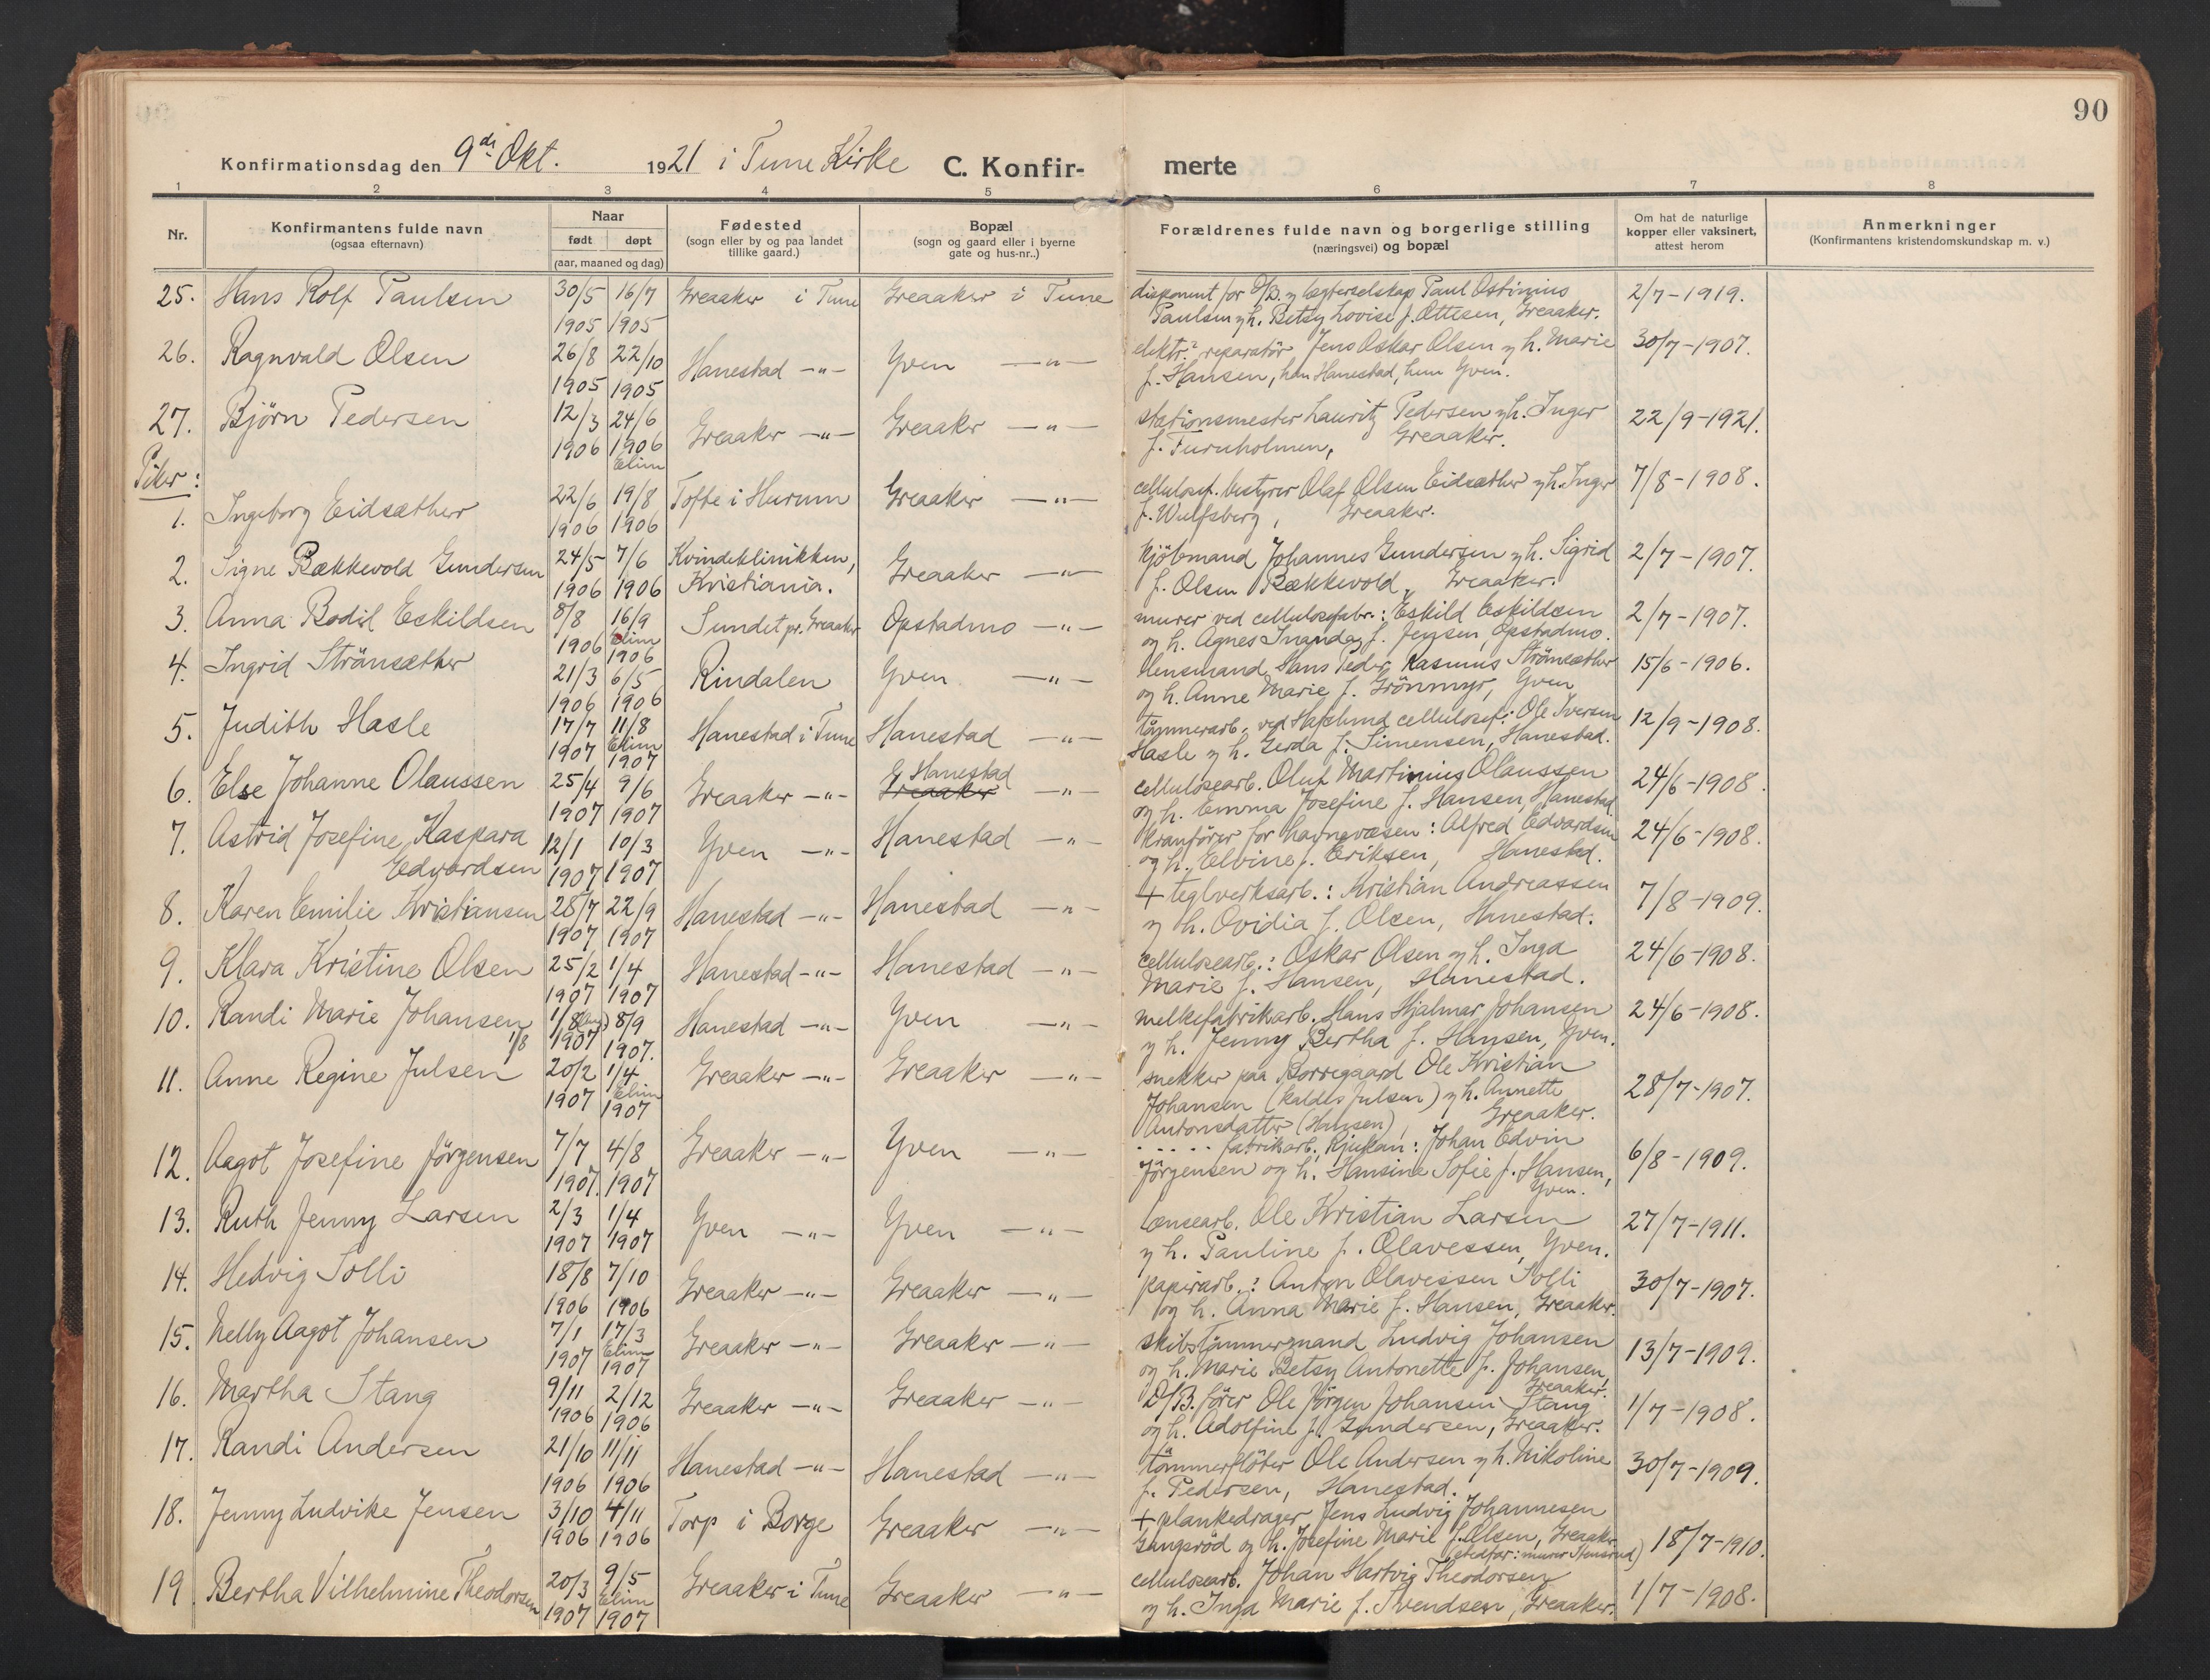 90
Konfirmationsdag den 9de Okt. 1921 i Tune Kirke C. Konfir- merte
1 2 3 4 5 6 7 8
Nr.
Konfirmantens fulde navn
(ogsaa efternavn)
Naar
født døpt
(aar, maaned og dag)
Fødested
(sogn eller by og paa landet
tillike gaard.)
Bopæl
(sogn og gaard eller i byerne
gate og hus-nr..)
Forældrenes fulde navn og borgerlige stilling
(næringsvei) og bopæl
Om hat de naturlige
kopper eller vaksinert,
attest herom
Anmerkninger
(Konfirmantens kristendomskundskap m. v.)
25. Hans Rolf Paulsen 30/5 16/7 Greaaker i Tune Greaaker i Tune disponent for A/B. Paul Ostinius 2/7-1919.
1905 1905 Paulsen og h. Betsy Lovise f. Ottesen, Greaaker.
26. Ragnvald Olsen 26/8 22/10 Hanestad -"- Yven -"- elektr. reparatör Jens Oskar Olsen og h. Marie 30/7-1907.
1905 1905 f. Hansen, han Hanestad, hun Yven.
27. Björn Pedersen 12/3 24/6 Greaaker -"- Greaaker -"- stationsmester Lauritz Pedersen og h. Inger 22/9-1921.
1906 1906 f. Furuholmen, Greaaker.
Elim
Piker:
1. Ingeborg Eidsæther 22/6 19/8 Tofte i Hurum Greaaker -"- cellulosef. bestyrer Olaf Olsen Eidsæther og h. Inger 7/8-1908.
1906 1906 f. Wulfsberg, Greaaker.
2. Signe Bækkevold Gundersen 24/5 7/6 Kvindeklinikken, Greaaker -"- kjöbmand Johannes Gundersen og h. Sigrid 2/7-1907.
1906 1906 Kristiania. f. Olsen Bækkevold, Greaaker.
3. Anna Bodil Eskildsen 8/8 16/9 Sundet pr. Greaaker Opstadmo -"- murer ved cellulosefabr.: Eskild Eskildsen 2/7-1907.
1906 Elim 1906 og h. Agnes f. Jensen, Opstadmo.
4. Ingrid Strömsæther 21/3 6/5 Rindalen Yven -"- lensmand Hans Peder Rasmus Strömsæther 15/6-1906.
1906 1906 og h. Anne Marie f. Grönmyr, Yven
5. Judith Hasle 17/7 11/8 Hanestad i Tune Hanestad -"- tömmerarb. ved Hafslund cellulosef.: Ole Iversen 12/9-1908.
1907 Elim 1907 Hasle og h. Gerda f. Simensen, Hanestad.
6. Else Johanne Olaussen 25/4 9/6 Greaaker -"- Hanestad Greaaker -"- cellulosearb. Oluf Martinius Olaussen 24/6-1908.
1907 1907 og h. Emma Josefine f. Hansen, Hanestad.
7. Astrid Josefine, Kaspara 12/1 10/3 Yven -"- Hanestad -"- kranförer for havnevæsen: Alfred Edvardsen 24/6-1908.
Edvardsen 1907 1907 og h. Elvine f. Eriksen, Hanestad.
8. Karen Emilie Kristiansen 28/7 22/9 Hanestad -"- Hanestad -"- + teglverksarb.: Kristian Andreassen 7/8-1909.
1907 1907 og h. Ovidia f. Olsen, Hanestad.
9. Klara Kristine Olsen 25/2 1/4 Hanestad -"- Hanestad -"- cellulosearb.: Oskar Olsen og h. Inga 24/6-1908.
1907 1907 Marie f. Hansen, Hanestad.
10. Randi Marie Johansen 1/8 8/9 Hanestad -"- Yven -"- melkefabrikarb. Hans Hjalmar Johansen 24/6-1908.
1/8 1907 1907. og h. Jenny Bertha f. Hansen, Yven.
11. Anne Regine Julsen 20/2 1/4 Greaaker -"- Greaaker -"- snekker paa Borregaard Ole Kristian 28/7-1907.
1907 Elim 1907 Johansen (kaldes Julsen) og h. Annette
Antonsdatter (Hansen), Greaaker.
12. Aagot Josefine Jörgensen 7/7 4/8 Greaaker -"- Yven -"- ..... fabrikarb. Rjukan: Johan Edvin 6/8-1909.
1907. 1907 Jörgensen og h. Hansine Sofie f. Hansen,
Yven.
13. Ruth Jenny Larsen 2/3 1/4 Yven -"- Yven -"- lensearb. Ole Kristian Larsen 27/7-1911.
1907 1907 og h. Pauline f. Olavessen, Yven.
14. Hedvig Solli 18/8 7/10 Greaaker -"- Greaaker -"- papirarb.: Anton Olavessen Solli 30/7-1907.
1906 1906 og h. Anna Marie f. Hansen, Greaaker.
15. Nelly Aagot Johansen 7/1 17/3 Greaaker -"- Greaaker -"- skibstömmermand Ludvig Johansen 13/7-1909.
1907 Elim 1907 og h. Marie Betsy Antonette f. Johansen,
Greaaker.
16. Martha Stang 9/11 2/12 Greaaker -"- Greaaker -"- D/B. förer Ole Jörgen Johansen Stang 1/7-1908.
1906 1906 og h. Adolfine f. Gundersen, Greaaker.
17. Randi Andersen 21/10 11/11 Hanestad -"- Hanestad -"- tömmerflöter Ole Andersen og h. Nikoline 30/7-1909.
1906 1906 f. Pedersen, Hanestad.
18. Jenny Ludvike Jensen 3/10 4/11 Torp i Borge Greaaker -"- + plankedrager Jens Ludvig Johannesen
1906 1906 Gangsröd og h. Josefine Marie f. Olsen, Greaaker 18/7-1910.
(stedfar: murer Stensrud)
19. Bertha Vilhelmine Theodorsen 20/3 9/5 Greaaker i Tune Greaaker -"- cellulosearb. Johan Hartvig Theodorsen 1/7-1908.
1907 Elim 1907 og h. Inga Marie f. Svendsen, Greaaker.